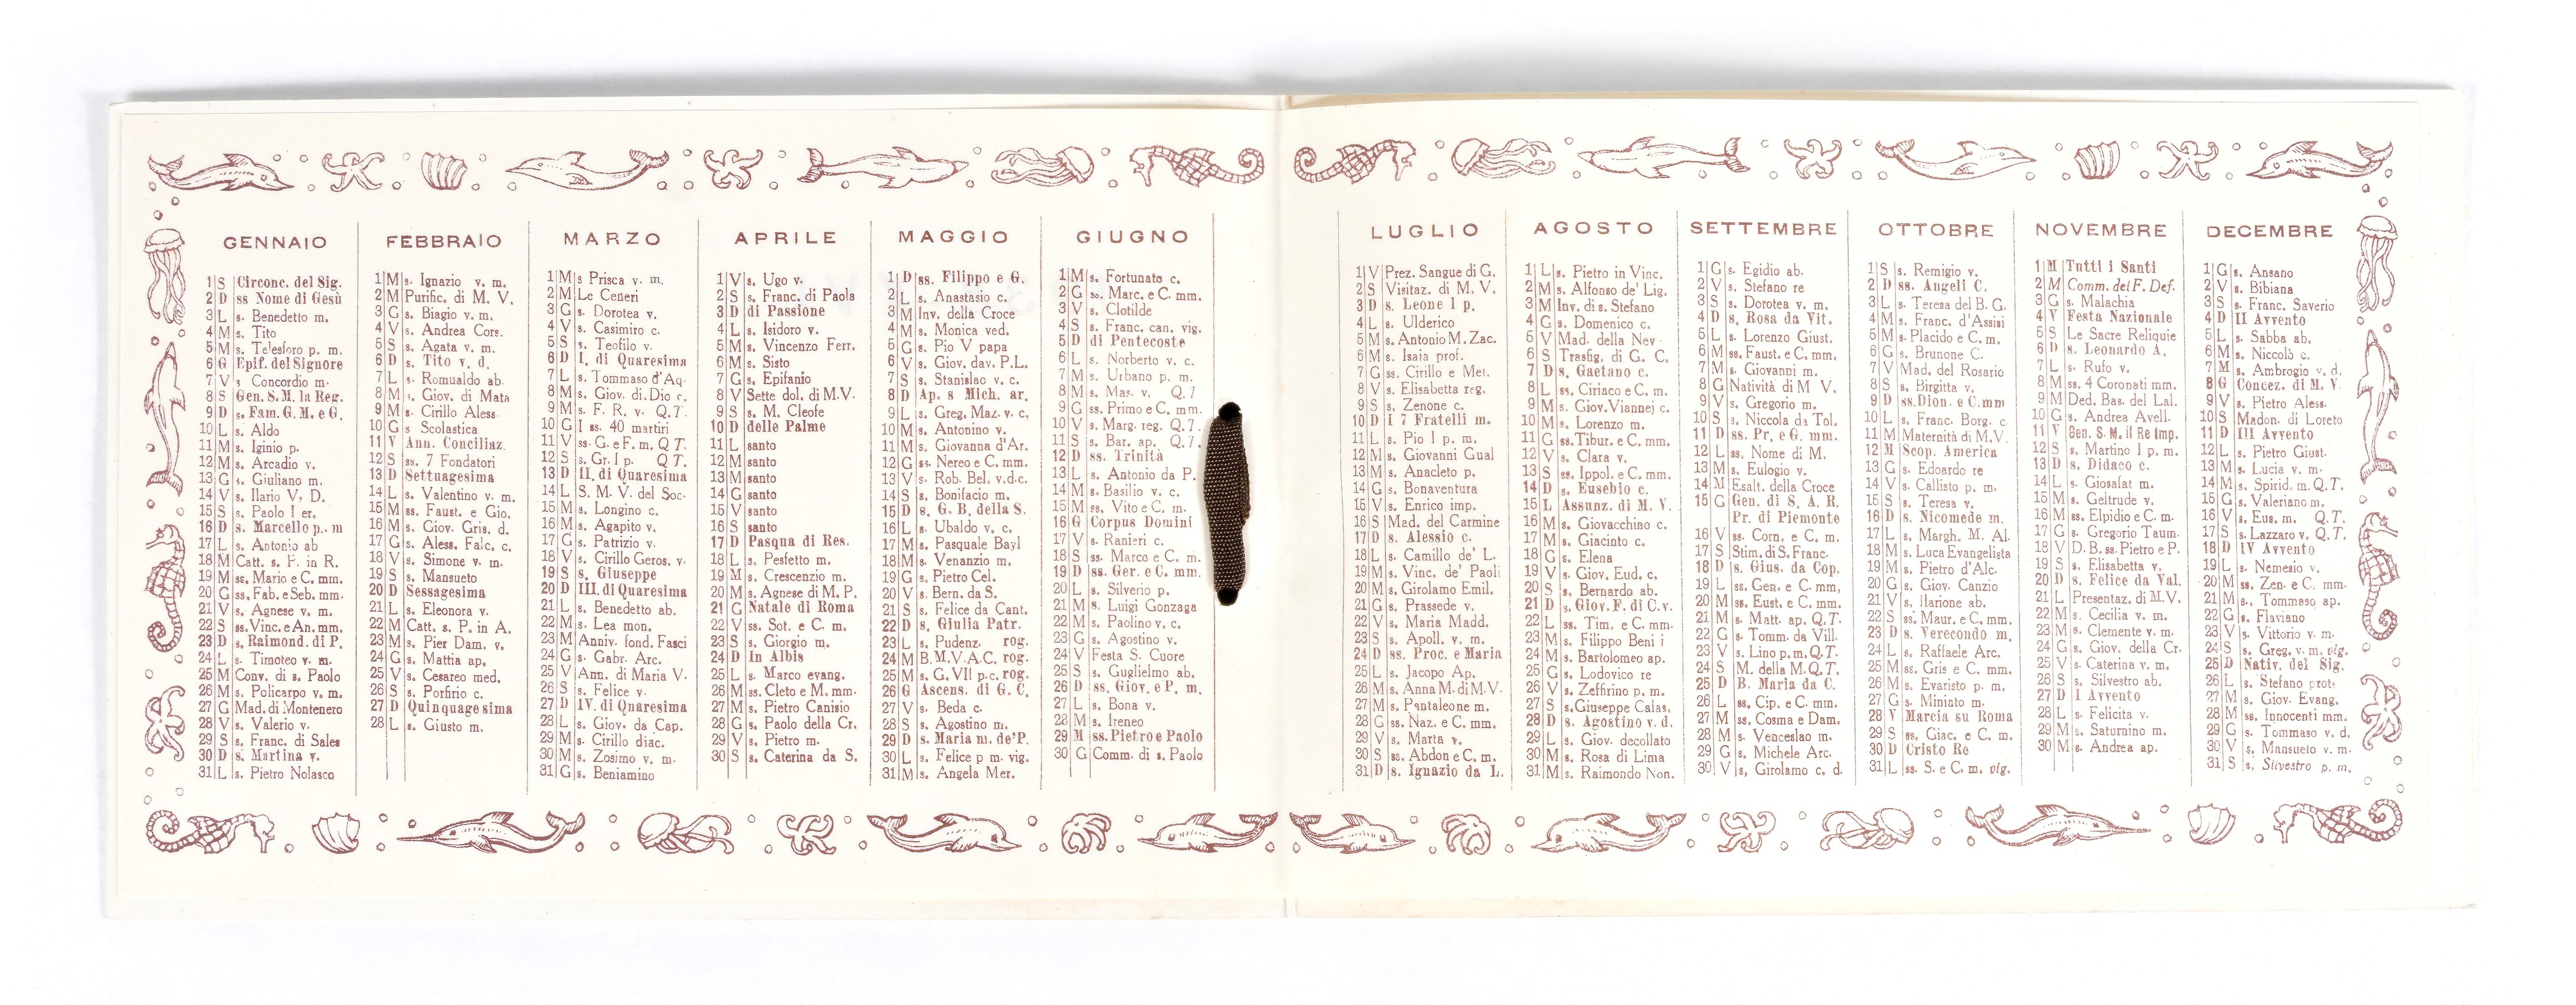 GENNAIO
1 S Circonc. del Sig.
2 D ss Nome di Gesù
3 L s. Benedetto m.
4 M s. Tito
5 M s. Telesforo p. m.
6 G Epif. del Signore
7 V s Concordio m.
8 S Gen. S. M. la Reg.
9 D s. Fam. G. M. e G.
10 L s. Aldo
11 M s. Iginio p.
12 M s. Arcadio v.
13 G s. Giuliano m.
14 V s. Ilario V. D.
15 S s. Paolo I er.
16 D s. Marcello p. m
17 L s. Antonio ab
18 M Catt. s. P. in R.
19 M ss. Mario e C. mm.
20 G ss. Fab. e Seb. mm.
21 V s. Agnese v. m.
22 S ss. Vinc. e An. mm.
23 D s. Raimond. di P.
24 L s. Timoteo v. m.
25 M Conv. di s. Paolo
26 M s. Policarpo v. m.
27 G Mad. di Montenero
28 V s. Valerio v.
29 S s. Franc. di Sales
30 D s. Martina v.
31 L s. Pietro Nolasco
FEBBRAIO
1 M s. Ignazio v. m.
2 M Purific. di M. V.
3 G s. Biagio v. m.
4 V s. Andrea Cors.
5 S s. Agata v. m.
6 D s. Tito v. d.
7 L s. Romualdo ab.
8 M s. Giov. di Mata
9 M s. Cirillo Aless.
10 G s Scolastica
11 V Ann. Conciliaz.
12 S ss. 7 Fondatori
13 D Settuagesima
14 L s. Valentino v. m.
15 M ss. Faust. e Gio.
16 M s. Giov. Gris. d.
17 G s. Aless. Falc. c.
18 V s. Simone v. m.
19 S s. Mansueto
20 D Sessagesima
21 L s. Eleonora v.
22 M Catt. s. P. in A.
23 M s. Pier Dam. v.
24 G s. Mattia ap.
25 V s. Cesareo med.
26 S s. Porfirio c.
27 D Quinquagesima
28 L s. Giusto m.
MARZO
1 M s Prisca v. m.
2 M Le Ceneri
3 G s. Dorotea v.
4 V s. Casimiro c.
5 S s. Teofilo v.
6 D I. di Quaresima
7 L s. Tommaso d'Aq.
8 M s. Giov. di Dio c.
9 M s. F. R. v. Q.T.
10 G I ss. 40 martiri
11 V ss. G. e F. m. Q T.
12 S s. Gr. I p. Q T.
13 D II. di Quaresima
14 L S. M. V. del Soc.
15 M s. Longino c.
16 M s. Agapito v.
17 G s. Patrizio v.
18 V s. Cirillo Geros. v.
19 S s. Giuseppe
20 D III. di Quaresima
21 L s. Benedetto ab.
22 M s. Lea mon.
23 M Anniv. fond. Fasci
24 G s. Gabr. Arc.
25 V Ann. di Maria V.
26 S s. Felice v.
27 D IV. di Quaresima
28 L s. Giov. da Cap.
29 M s. Cirillo diac.
30 M s. Zosimo v. m.
31 G s. Beniamino
APRILE
1 V s. Ugo v.
2 S s. Franc. di Paola
3 D di Passione
4 L s. Isidoro v.
5 M s. Vincenzo Ferr.
6 M s. Sisto
7 G s. Epifanio
8 V Sette dol. di M.V.
9 S s. M. Cleofe
10 D delle Palme
11 L santo
12 M santo
13 M santo
14 G santo
15 V santo
16 S santo
17 D Pasqua di Res.
18 L s. Pesfetto m.
19 M s. Crescenzio m.
20 M s. Agnese di M. P.
21 G Natale di Roma
22 V ss. Sot. e C. m.
23 S s. Giorgio m.
24 D In Albis
25 L s. Marco evang.
26 M ss. Cleto e M. mm.
27 M s. Pietro Canisio
28 G s. Paolo della Cr.
29 V s. Pietro m.
30 S s. Caterina da S.
MAGGIO
1 D ss. Filippo e G.
2 L s. Anastasio c.
3 M Inv. della Croce
4 M s. Monica ved.
5 G s. Pio V papa
6 V s. Giov. dav. P.L.
7 S s. Stanislao v. c.
8 D Ap. s Mich. ar.
9 L s. Greg. Maz. v. c.
10 M s. Antonino v.
11 M s. Giovanna d'Ar.
12 G ss. Nereo e C. mm.
13 V s. Rob. Bel. v.d.c.
14 S s. Bonifacio m.
15 D s. G. B. della S.
16 L s. Ubaldo v. c.
17 M s. Pasquale Bayl
18 M s. Venanzio m.
19 G s. Pietro Cel.
20 V s. Bern. da S.
21 S s. Felice da Cant.
22 D s. Giulia Patr.
23 L s. Pudenz. rog.
24 M B.M.V.A.C. rog.
25 M s. G. VII p.c. rog.
26 G Ascens. di G. C.
27 V s. Beda c.
28 S s. Agostino m.
29 D s. Maria m. de' P.
30 L s. Felice p m. vig.
31 M s. Angela Mer.
GIUGNO
1 M s. Fortunato c.
2 G ss. Marc. e C. mm.
3 V s. Clotilde
4 S s. Franc. can. vig.
5 D di Pentecoste
6 L s. Norberto v. c.
7 M s. Urbano p. m.
8 M s. Mas. v. Q.T
9 G ss. Primo e C. mm.
10 V s. Marg. reg. Q.T.
11 S s. Bar. ap. Q.T.
12 D ss. Trinità
13 L s. Antonio da P.
14 M s. Basilio v. c.
15 M ss. Vito e C. m.
16 G Corpus Domini
17 V s. Ranieri c.
18 S ss. Marco e C. m.
19 D ss. Ger. e C. mm.
20 L s. Silverio p.
21 M s. Luigi Gonzaga
22 M s. Paolino v. c.
23 G s. Agostino v.
24 V Festa S. Cuore
25 S s. Guglielmo ab.
26 D ss. Giov. e P. m.
27 L s. Bona v.
28 M s. Ireneo
29 M ss. Pietro e Paolo
30 G Comm. di s. Paolo
LUGLIO
1 V Prez. Sangue di G.
2 S Visitaz. di M. V.
3 D s. Leone I p.
4 L s. Ulderico
5 M s. Antonio M. Zac.
6 M s. Isaia prof.
7 G ss. Cirillo e Met.
8 V s. Elisabetta reg.
9 S s. Zenone c.
10 D I 7 Fratelli m.
11 L s. Pio I p. m.
12 M s. Giovanni Gual
13 M s. Anacleto p.
14 G s. Bonaventura
15 V s. Enrico imp.
16 S Mad. del Carmine
17 D s. Alessio c.
18 L s. Camillo de' L.
19 M s. Vinc. de' Paoli
20 M s. Girolamo Emil.
21 G s. Prassede v.
22 V s. Maria Madd.
23 S s. Apoll. v. m.
24 D ss. Proc. e Maria
25 L s. Jacopo Ap.
26 M s. Anna M. di M.V.
27 M s. Pantaleone m.
28 G ss. Naz. e C. mm.
29 V s. Marta v.
30 S ss. Abdon e C. m.
31 D s. Ignazio da L.
AGOSTO
1 L s. Pietro in Vinc.
2 M s. Alfonso de' Lig.
3 M Inv. di s. Stefano
4 G s. Domenico c.
5 V Mad. della Nev
6 S Trasfig. di G. C.
7 D s. Gaetano c.
8 L ss. Ciriaco e C. m.
9 M s. Giov. Viannej c.
10 M s. Lorenzo m.
11 G ss. Tibur. e C. mm.
12 V s. Clara v.
13 S ss. Ippol. e C. mm.
14 D s. Eusebio c.
15 L Assunz. di M. V.
16 M s. Giovacchino c.
17 M s. Giacinto c.
18 G s. Elena
19 V s. Giov. Eud. c.
20 S s. Bernardo ab.
21 D s. Giov. F. di C. v.
22 L ss. Tim. e C. mm.
23 M s. Filippo Beni i
24 M s. Bartolomeo ap.
25 G s. Lodovico re
26 V s. Zeffirino p. m.
27 S s. Giuseppe Calas.
28 D s. Agostino v. d.
29 L s. Giov. decollato
30 M s. Rosa di Lima
31 M s. Raimondo Non.
SETTEMBRE
1 G s. Egidio ab.
2 V s. Stefano re
3 S s. Dorotea v. m.
4 D s. Rosa da Vit.
5 L s. Lorenzo Giust.
6 M ss. Faust. e C. mm.
7 M s. Giovanni m.
8 G Natività di M V.
9 V s. Gregorio m.
10 S s. Niccola da Tol.
11 D ss. Pr. e G. mm.
12 L ss. Nome di M.
13 M s. Eulogio v.
14 M Esalt. della Croce
15 G Gen. di S. A. R.
Pr. di Piemonte
16 V ss. Corn. e C. m.
17 S Stim. di S. Franc.
18 D s. Gius. da Cop.
19 L ss. Gen. e C. mm.
20 M ss. Eust. e C. mm.
21 M s. Matt. ap. Q.T.
22 G s. Tomm. da Vill.
23 V s. Lino p. m. Q.T.
24 S M. della M. Q.T.
25 D B. Maria da C.
26 L ss. Cip. e C. mm.
27 M ss. Cosma e Dam.
28 M s. Venceslao m.
29 G s. Michele Arc.
30 V s. Girolamo c. d.
OTTOBRE
1 S s. Remigio v.
2 D ss. Angeli C.
3 L s. Teresa del B. G.
4 M s. Franc. d'Assisi
5 M s. Placido e C. m.
6 G s. Brunone C.
7 V Mad. del Rosario
8 S s. Birgitta v.
9 D ss. Dion. e C. mm
10 L s. Franc. Borg. c
11 M Maternità di M.V.
12 M Scop. America
13 G s. Edoardo re
14 V s. Callisto p. m.
15 S s. Teresa v.
16 D s. Nicomede m.
17 L s. Margh. M. Al.
18 M s. Luca Evangelista
19 M s. Pietro d'Alc.
20 G s. Giov. Canzio
21 V s. Ilarione ab.
22 S ss. Maur. e C. mm.
23 D s. Verecondo m.
24 L s. Raffaele Arc.
25 M ss. Gris e C. mm.
26 M s. Evaristo p. m.
27 G s. Miniato m.
28 V Marcia su Roma
29 S ss. Giac. e C. m.
30 D Cristo Re
31 L ss. S. e C. m. vig.
NOVEMBRE
1 M Tutti i Santi
2 M Comm. dei F. Def.
3 G s. Malachia
4 V Festa Nazionale
5 S Le Sacre Reliquie
6 D s. Leonardo A.
7 L s. Rufo v.
8 M ss. 4 Coronati mm.
9 M Ded. Bas. del Lal.
10 G s. Andrea Avell.
11 V Gen. S. M. il Re Imp.
12 S s. Martino I p. m.
13 D s. Didaco c.
14 L s. Giosafat m.
15 M s. Geltrude v.
16 M ss. Elpidio e C. m.
17 G s. Gregorio Taum.
18 V D. B. ss. Pietro e P.
19 S s. Elisabetta v.
20 D s. Felice da Val.
21 L Presentaz. di M.V.
22 M s. Cecilia v. m.
23 M s. Clemente v. m.
24 G s. Giov. della Cr.
25 V s. Caterina v. m.
26 S s. Silvestro ab.
27 D I Avvento
28 L s. Felicita v.
29 M s. Saturnino m.
30 M s. Andrea ap.
DECEMBRE
1 G s. Ansano
2 V s. Bibiana
3 S s. Franc. Saverio
4 D II Avvento
5 L s. Sabba ab.
6 M s. Niccolò c.
7 M s. Ambrogio v. d.
8 G Concez. di M. V.
9 V s. Pietro Aless.
10 S Madon. di Loreto
11 D III Avvento
12 L s. Pietro Giust.
13 M s. Lucia v. m.
14 M s. Spirid. m. Q.T.
15 G s. Valeriano m.
16 V s. Eus. m. Q.T.
17 S s. Lazzaro v. Q.T.
18 D IV Avvento
19 L s. Nemesio v.
20 M ss. Zen. e C. mm.
21 M s. Tommaso ap.
22 G s. Flaviano
23 V s. Vittorio v. m.
24 S s. Greg. v. m. vig.
25 D Nativ. del Sig.
26 L s. Stefano prot.
27 M s. Giov. Evang.
28 M ss. Innocenti mm.
29 G s. Tommaso v. d.
30 V s. Mansueto v. m.
31 S s. Silvestro p. m.